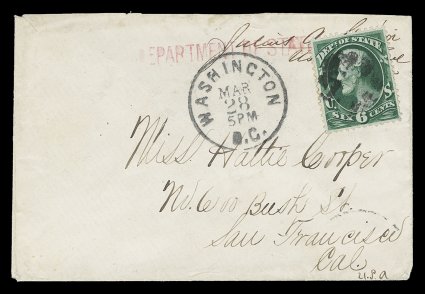 DEPARTMENT OF STATE
WASHINGTON
MAR
28
5PM
D.C.
DEP'T OF STATE
U. S.
SIX 6 CENTS
Miss Hattie Cooper
No. 600 Bush St.
San Francisco
Cal.
U.S.A